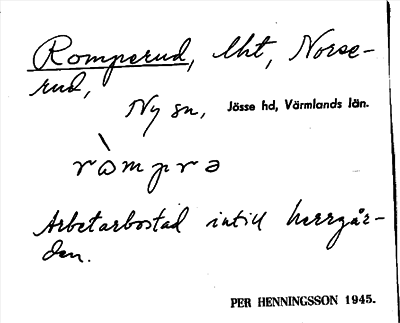 Romperud, lht, Norse-
rud,
Ny sn, Jösse hd, Värmlands län.
ròmprə
Arbetarbostad intill herrgår-
den.
PER HENNINGSSON 1945.